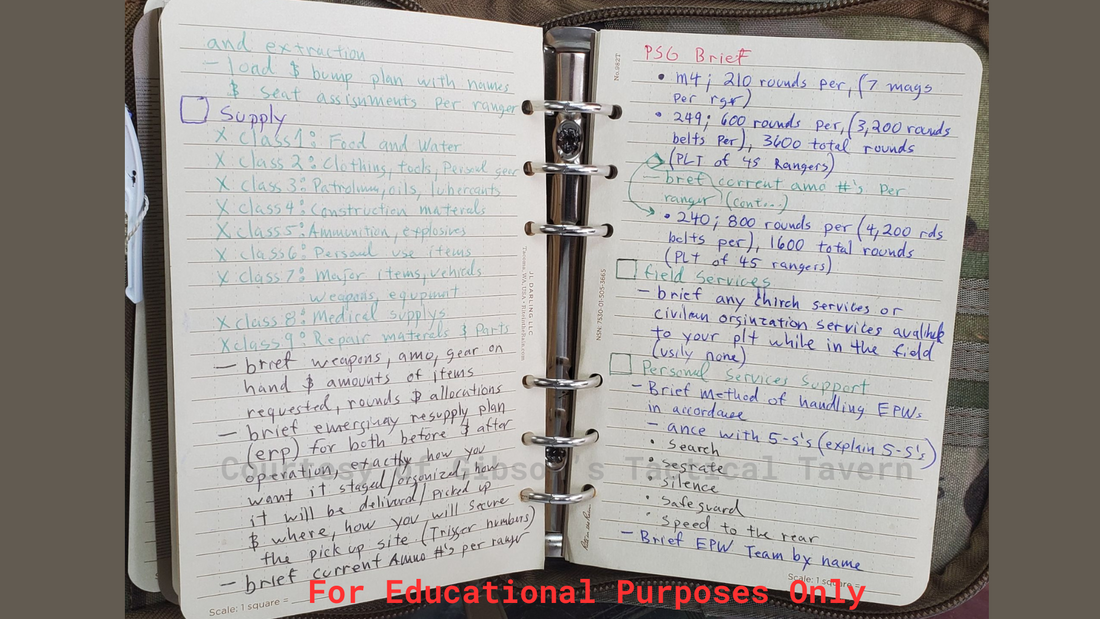 and extraction
- load $ bump plan with names
$ seat assignments per ranger
Supply
X class 1: Food and Water
X class 2: Clothing, tools, Personal gear
X class 3: Patrolium, oils, luhercants
X class 4: Construction materials
X class 5: Ammunition, explosives
X class 6: Personal use items
X class 7: Major items, vehicals
weapons, equpmint
X class 8: Medical supplys
X class 9: Repair materials $ Parts
- brief weapons, amo, gear on
hand $ amounts of items
requested, rounds $ allocations
- brief emerginay resupply plan
(erp) for both before $ after
operation, exactly how you
want it staged/organized, how
it will be delivard/picked up
$ where, how you will secure
the pick up site (Trigger numbers)
- brief current Ammo #'s per ranger
Scale: 1 square =
JL DARLING LLC
Tacoma, WA, USA • RiteintheRain.com
No. 982T
NSN: 7530-01-505-3665
PSG Brief
• m4; 210 rounds per, (7 mags
per rgr)
• 249; 600 rounds per, (3,200 rounds
belts per), 3600 total rounds
(PLT of 45 Rangers)
- bref current amo #'s per
ranger (cont...)
• 240; 800 rounds per (4,200 rds
belts per), 1600 total rounds
(PLT of 45 rangers)
field services
- brief any chirch services or
civilian orginzation services avalible
to your plt while in the field
(usily none)
Personal Services Support
- Brief method of handling EPWs
in accordance
- ance with 5-s's (explain 5-s's)
• Search
• segrate
• silence
• Safeguard
• Speed to the rear
- Brief EPW Team by name
Scale: 1 square =
Courtesy of Gibson's Tactical Tavern
For Educational Purposes Only